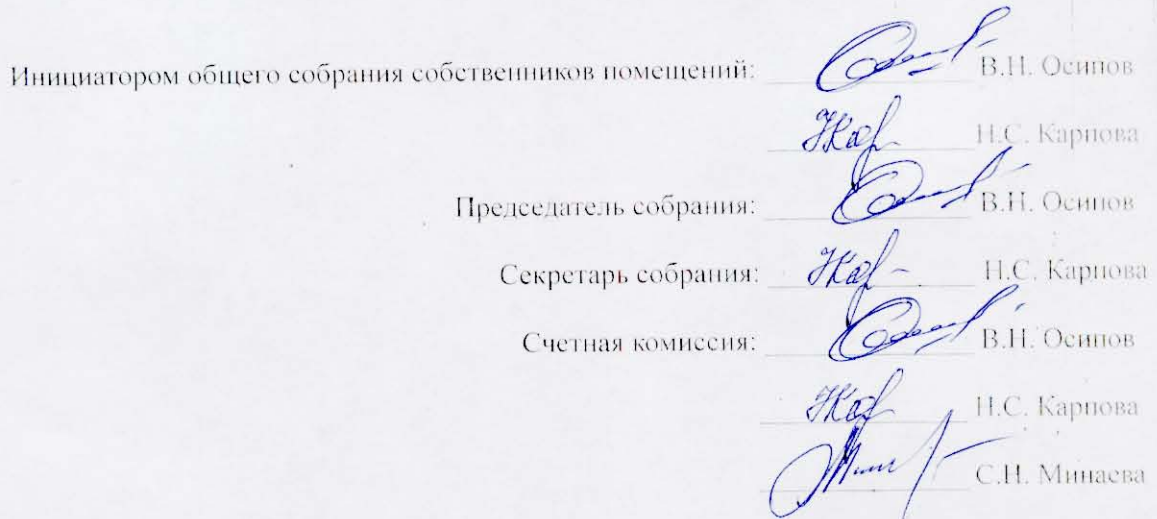 Инициатором общего собрания собственников помещений: В.Н. Осипов
Н.С. Карпова
Председатель собрания: В.Н. Осипов
Секретарь собрания: Н.С. Карпова
Счетная комиссия: В.Н. Осипов
Н.С. Карпова
С.Н. Минаева